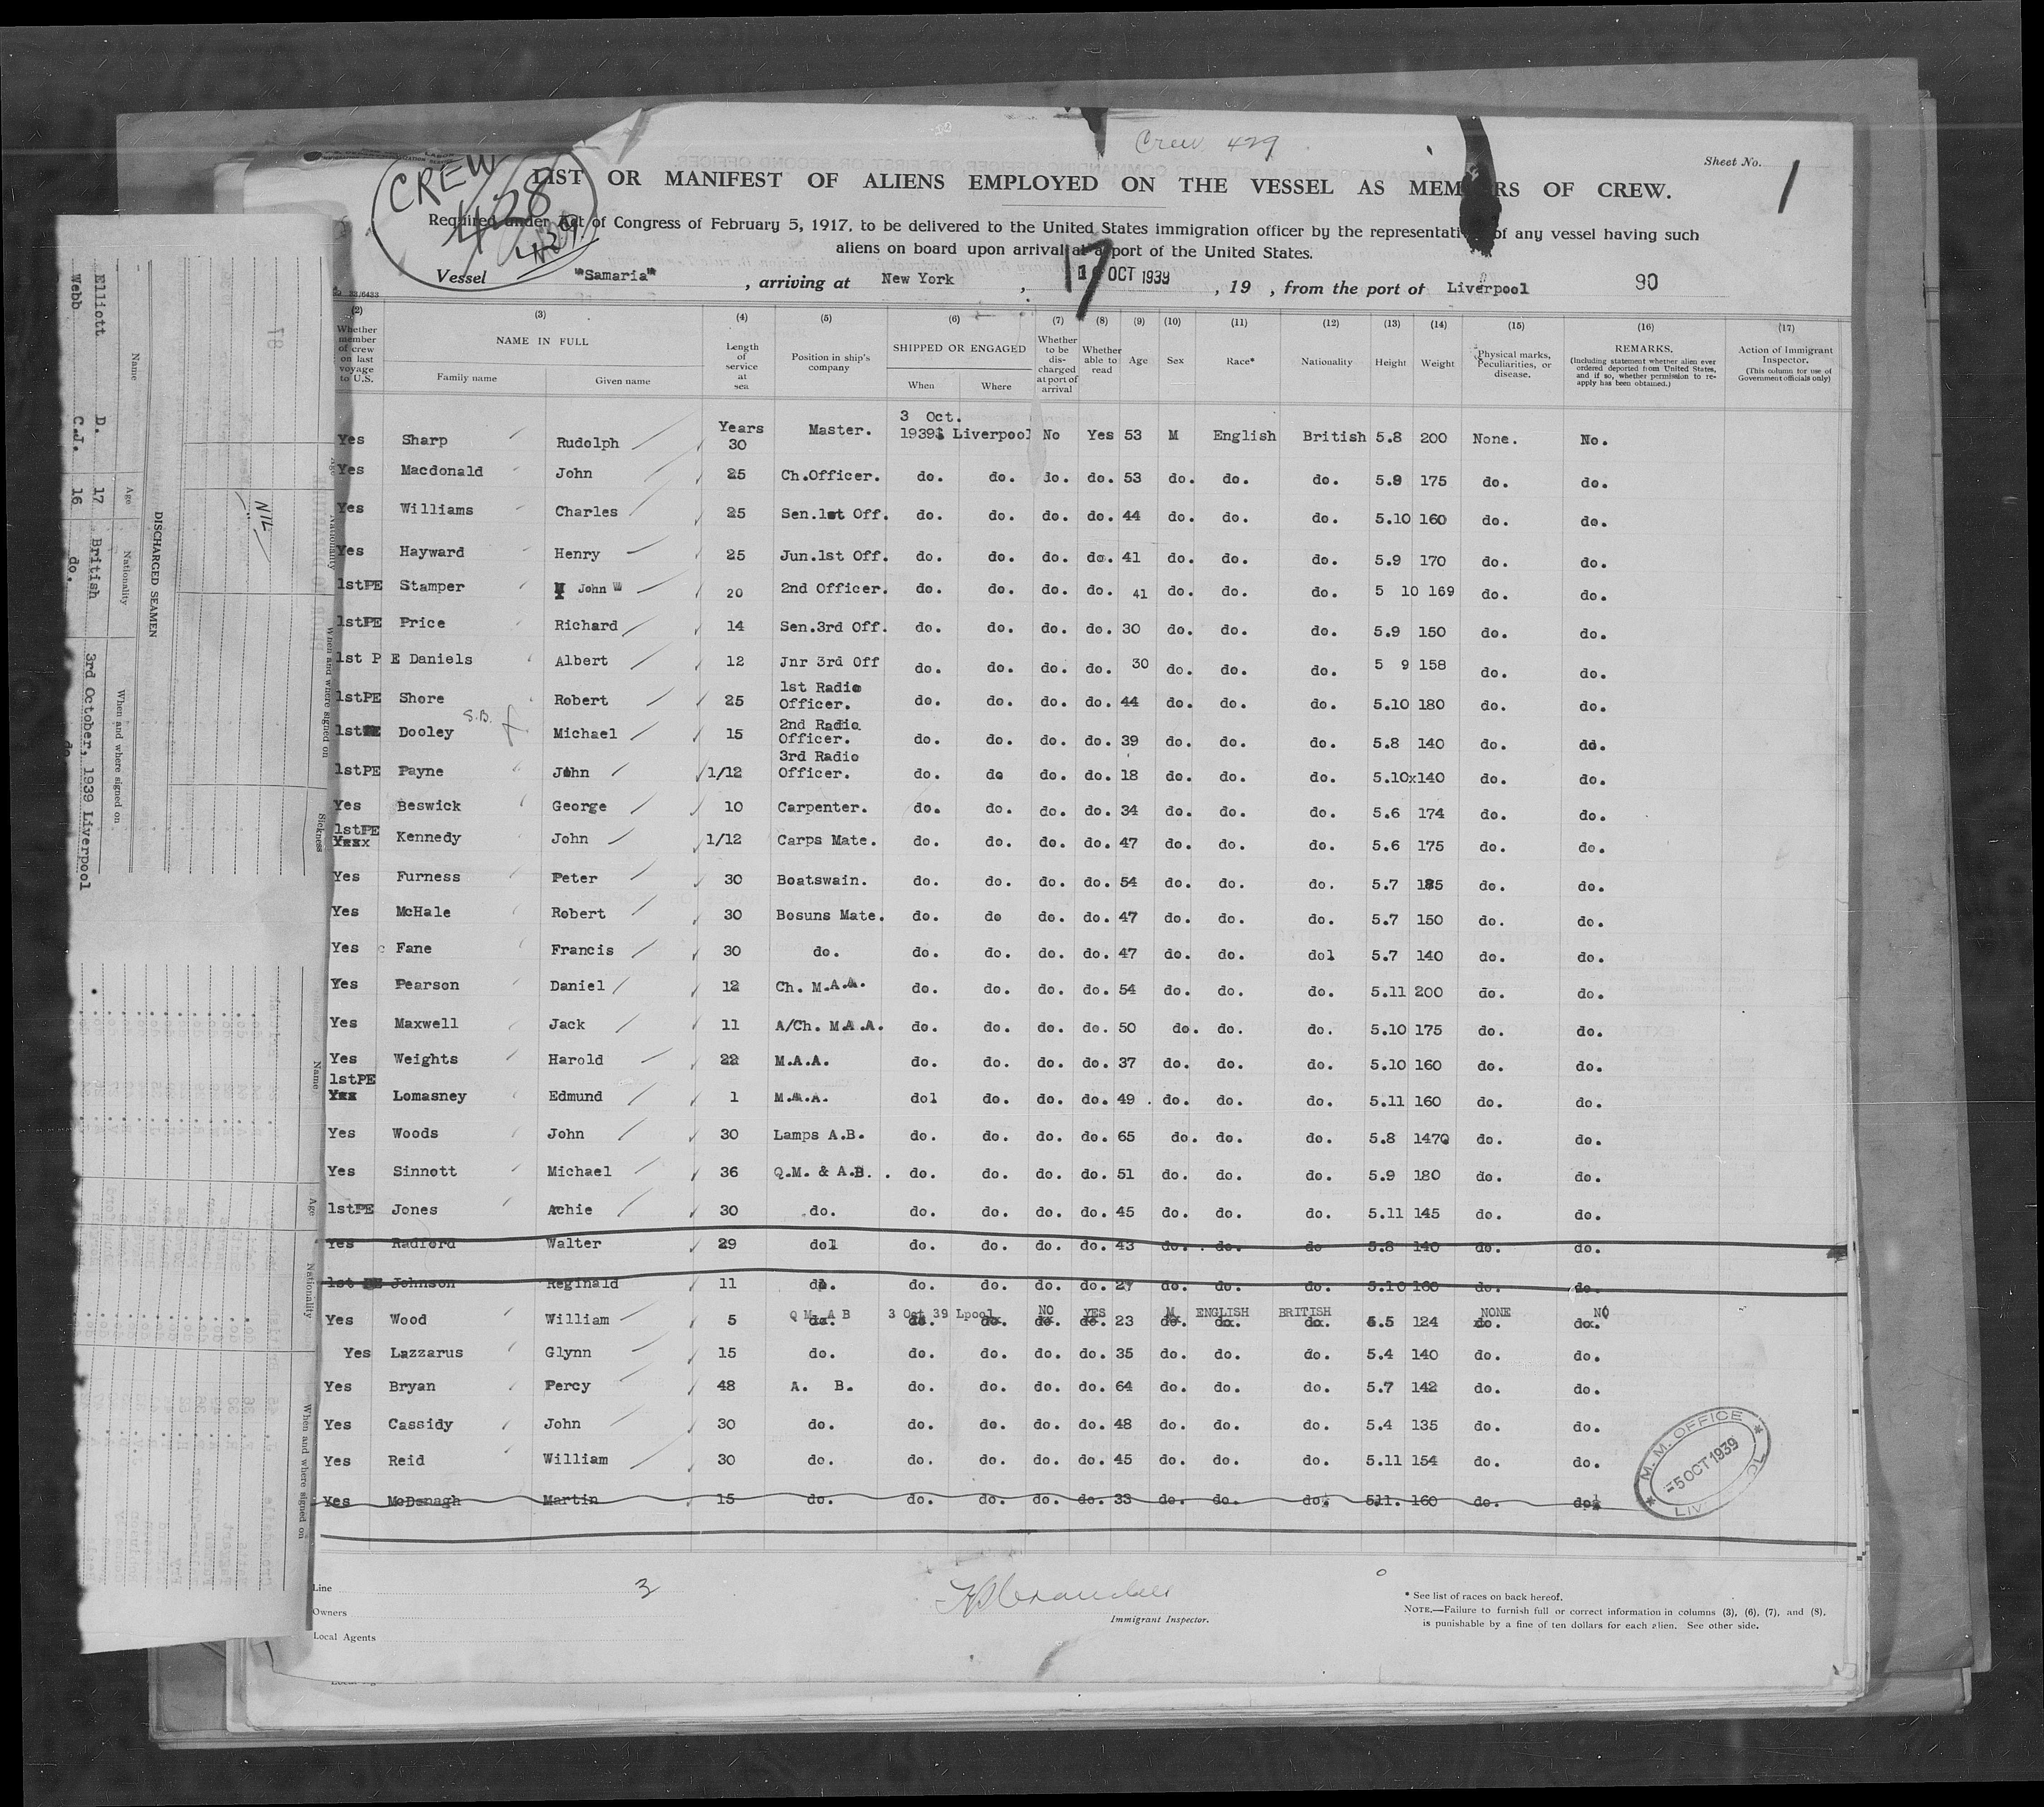 Crew 429
Sheet No. 1
CREW
428
429
LIST OR MANIFEST OF ALIENS EMPLOYED ON THE VESSEL AS MEM RS OF CREW.
Required under Act of Congress of February 5, 1917, to be delivered to the United States immigration officer by the representati of any vessel having such
aliens on board upon arrival at a port of the United States.
Vessel "Samaria" , arriving at New York , 17 OCT 1939 , 19 , from the port of Liverpool 90
(2) (3) (4) (5) (6) (7) (8) (9) (10) (11) (12) (13) (14) (15) (16) (17)
Whether member of crew on last voyage to U.S.
NAME IN FULL
Family name Given name
Length of service at sea
Position in ship's company
SHIPPED OR ENGAGED
When Where
Whether to be discharged at port of arrival
Whether able to read
Age
Sex
Race*
Nationality
Height
Weight
Physical marks, Peculiarities, or disease.
REMARKS.
(Including statement whether alien ever ordered deported from United States, and if so, whether permission to reapply has been obtained.)
Action of Immigrant Inspector.
(This column for use of Government officials only)
Yes Sharp Rudolph Years 30 Master. 3 Oct. 1939 Liverpool No Yes 53 M English British 5.8 200 None. No.
Yes Macdonald John 25 Ch.Officer. do. do. do. do. 53 do. do. do. 5.9 175 do. do.
Yes Williams Charles 25 Sen.1st Off. do. do. do. do. 44 do. do. do. 5.10 160 do. do.
Yes Hayward Henry 25 Jun.1st Off. do. do. do. do. 41 do. do. do. 5.9 170 do. do.
1stPE Stamper John W 20 2nd Officer. do. do. do. do. 41 do. do. do. 5 10 169 do. do.
1stPE Price Richard 14 Sen.3rd Off. do. do. do. do. 30 do. do. do. 5.9 150 do. do.
1st P E Daniels Albert 12 Jnr 3rd Off do. do. do. do. 30 do. do. do. 5 9 158 do. do.
1stPE Shore Robert 25 1st Radio Officer. do. do. do. do. 44 do. do. do. 5.10 180 do. do.
1stPE Dooley S.B. Michael 15 2nd Radio Officer. do. do. do. do. 39 do. do. do. 5.8 140 do. do.
1stPE Payne John 1/12 3rd Radio Officer. do. do do. do. 18 do. do. do. 5.10x140 do. do.
Yes Beswick George 10 Carpenter. do. do. do. do. 34 do. do. do. 5.6 174 do. do.
1stPE Yesx Kennedy John 1/12 Carps Mate. do. do. do. do. 47 do. do. do. 5.6 175 do. do.
Yes Furness Peter 30 Boatswain. do. do. do. do. 54 do. do. do. 5.7 185 do. do.
Yes McHale Robert 30 Bosuns Mate. do. do do. do. 47 do. do. do. 5.7 150 do. do.
Yes Fane Francis 30 do. do. do. do. do. 47 do. do. dol 5.7 140 do. do.
Yes Pearson Daniel 12 Ch. M.A.A. do. do. do. do. 54 do. do. do. 5.11 200 do. do.
Yes Maxwell Jack 11 A/Ch. M.A.A. do. do. do. do. 50 do. do. do. 5.10 175 do. do.
Yes Weights Harold 22 M.A.A. do. do. do. do. 37 do. do. do. 5.10 160 do. do.
1stPE Yes Lomasney Edmund 1 M.A.A. dol do. do. do. 49 . do. do. do. 5.11 160 do. do.
Yes Woods John 30 Lamps A.B. do. do. do. do. 65 do. do. do. 5.8 1470 do. do.
Yes Sinnott Michael 36 Q.M. & A.B. . do. do. do. do. 51 do. do. do. 5.9 180 do. do.
1stPE Jones Achie 30 do. do. do. do. do. 45 do. do. do. 5.11 145 do. do.
Yes Radford Walter 29 dol do. do. do. do. 43 do. do. do 5.8 140 do. do.
1st PE Johnson Reginald 11 do. do. do. do. do. 27 do. do. do. 5.10 160 do. do.
Yes Wood William 5 Q M. A B 3 Oct 39 Lpool NO YES 23 M ENGLISH BRITISH 5.5 124 NONE NO
Yes Lazzarus Glynn 15 do. do. do. do. do. 35 do. do. do. 5.4 140 do. do.
Yes Bryan Percy 48 A. B. do. do. do. do. 64 do. do. do. 5.7 142 do. do.
Yes Cassidy John 30 do. do. do. do. do. 48 do. do. do. 5.4 135 do. do.
Yes Reid William 30 do. do. do. do. do. 45 do. do. do. 5.11 154 do. do.
Yes McDonagh Martin 15 do. do. do. do. do. 33 do. do. do. 511. 160 do. do.
M. M. OFFICE
=5 OCT 1939
LIV OL
Line 3
Owners
Local Agents
Immigrant Inspector.
* See list of races on back hereof.
NOTE.—Failure to furnish full or correct information in columns (3), (6), (7), and (8), is punishable by a fine of ten dollars for each alien. See other side.
DISCHARGED SEAMEN
Name Age Nationality When and where signed on
Elliott D. 17 British 3rd October, 1939 Liverpool
Webb C.J. 16 do. do
78
NIL
Age Nationality When and where signed on Sickness
Name Age Nationality When and where signed on